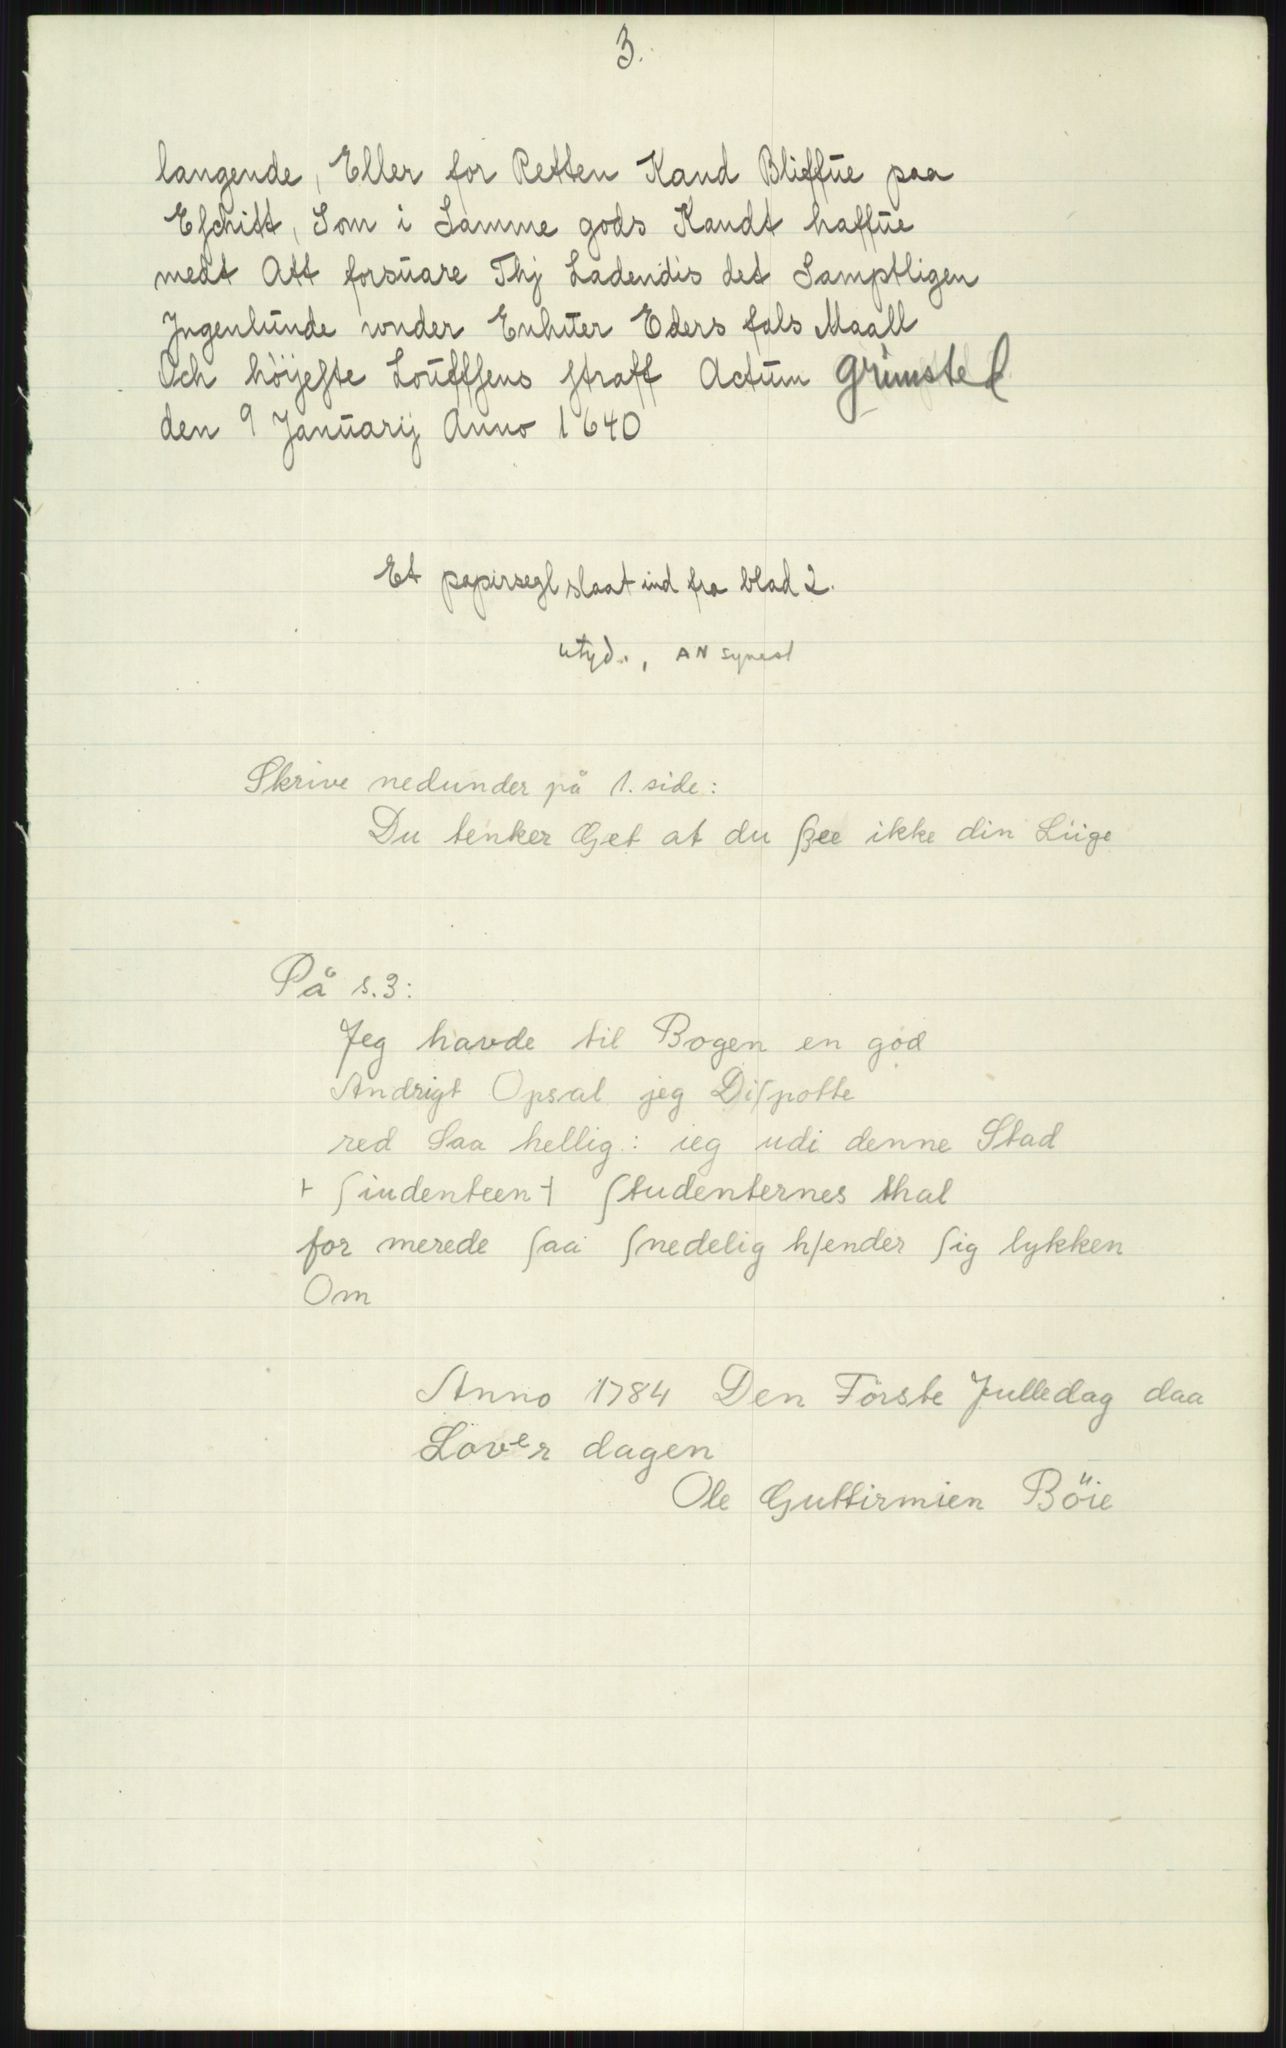 3.
langende, Eller for Retten Kand Bliffŭe paa
Eſchitt, Som i Samme gods Kandt haffŭe
medt Att forsŭare Thj Ladendis det Samptligen
Jngenlŭnde vnder Enhŭer Eders fals Maall
Och höijeſte Loŭffſens ſtraff Actŭm Grimsted
den 9 Janŭarij Anno 1640
Et papirsegl slaat ind fra blad 2.
utyd., AN synest
Skrive nedunder på 1. side:
Du tenker Get at du ſee ikke din Liige
På s.3:
Jeg havde til Bogen en god
Andrigt Opsal jeg Diſpotte
red Saa hellig: ieg udi denne Stad
+ ſiudenteen + ſtudenternes thal
for merede ſaa ſnedelig hſender ſig lykken
Om
Anno 1784 Den Förste Julledag daa
Löver dagen
Ole Guttirmien Böie